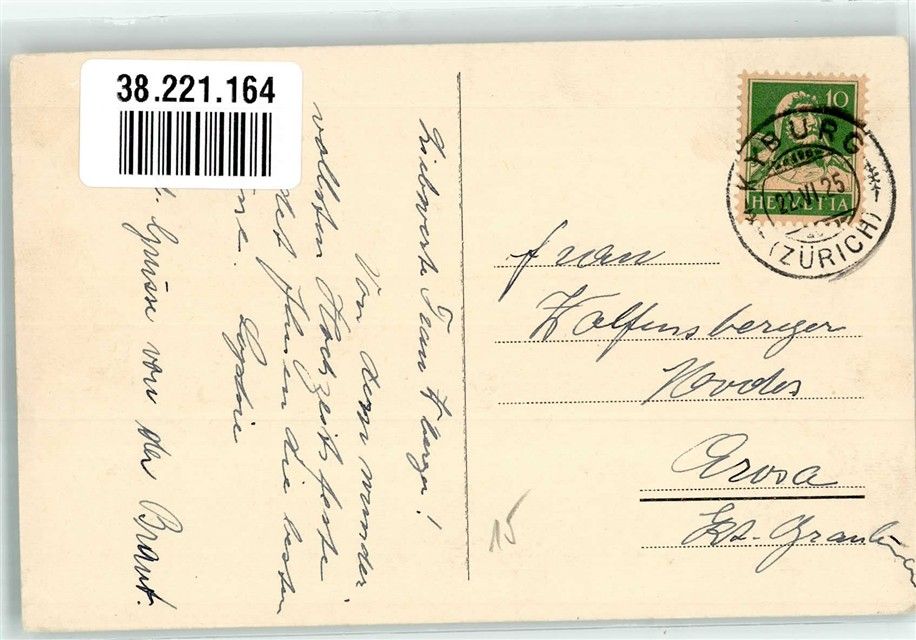 38.221.164
Liebwerte Frau
Von dem wunder
vollsten Hochzeitsfeste
Ihnen die besten
Grüsse von der Braut.
10
HELVETIA
KYBURG
22.VI.25
(ZÜRICH)
Frau
Wolfensberger
Modes
Arosa
Kt. Graubünden
15